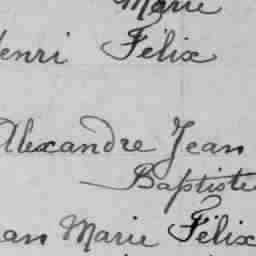 Marie
Henri Félix
Alexandre Jean
Baptiste
Jean Marie Félix